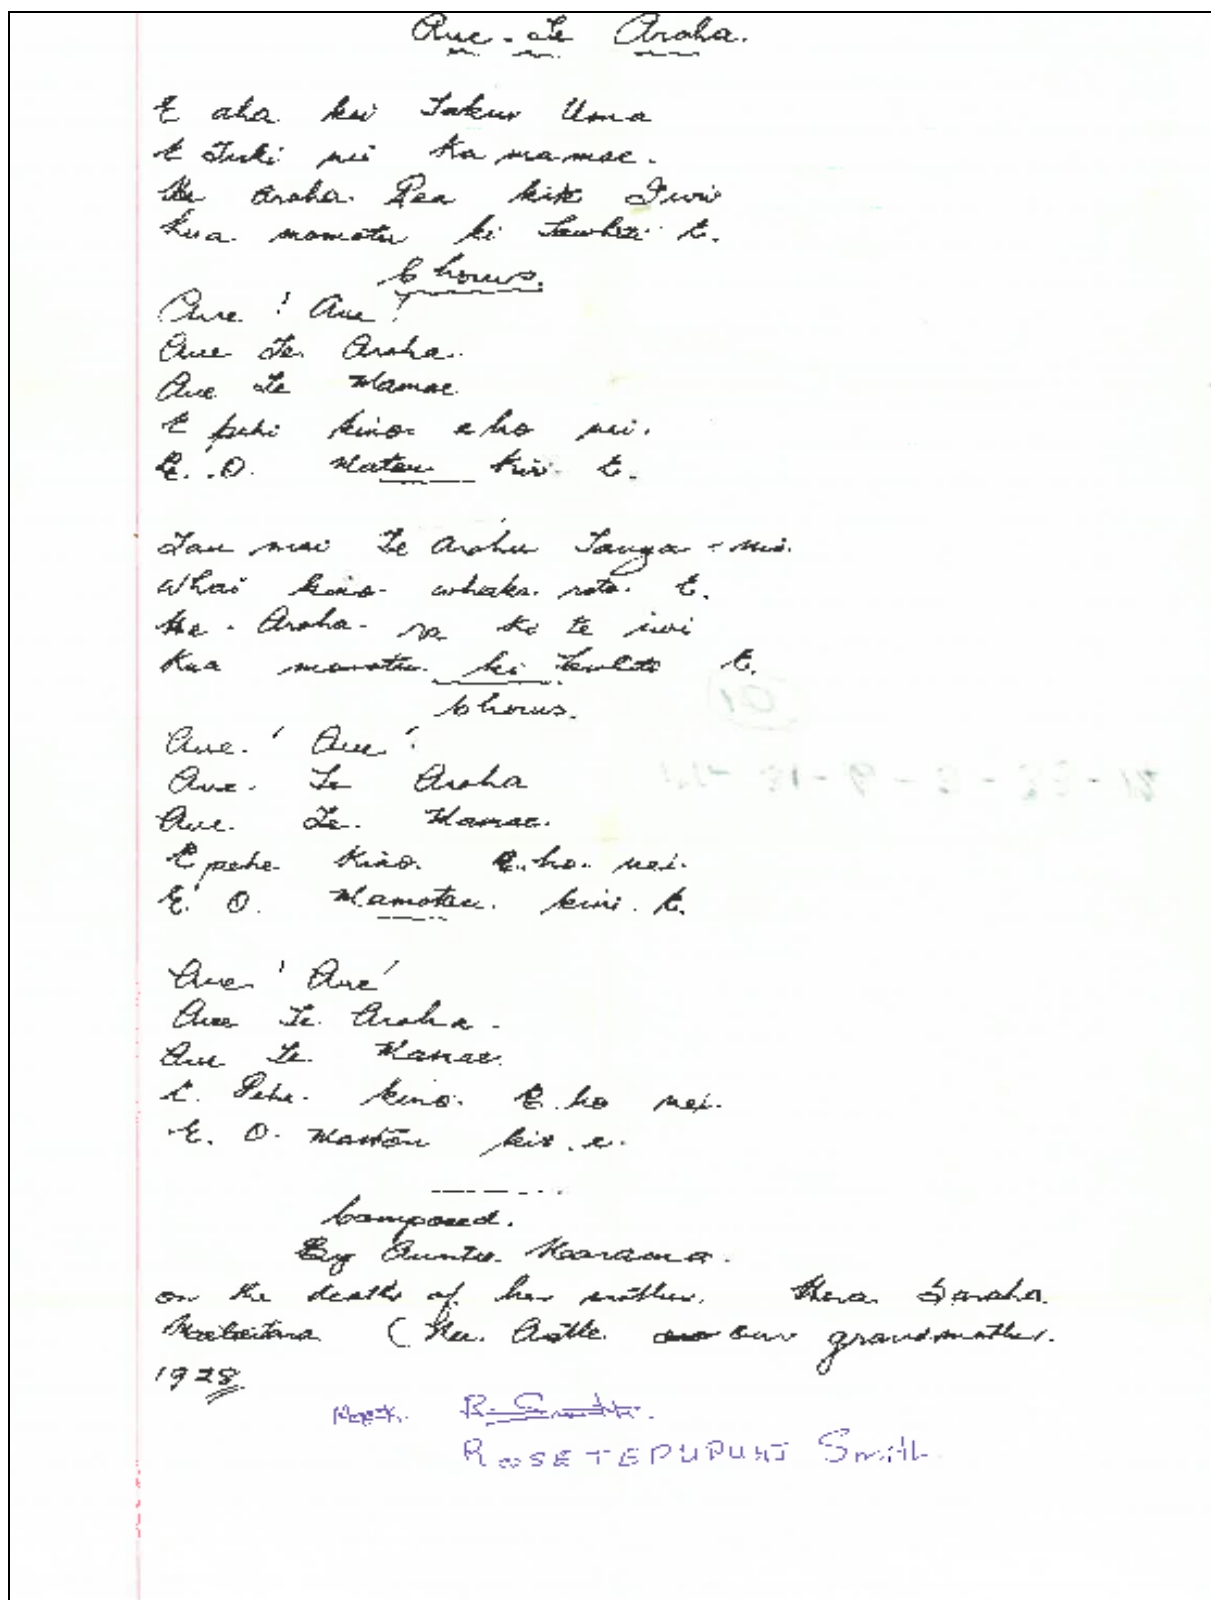 Aue - Te Aroha.
E aha kei Takuu Uma
E Tuki nei Ka mamae.
He Aroha Pea kite Iwi
kua momotu ki Tawhiti E.
Chorus.
Aue ! Aue !
Aue Te Aroha.
Aue Te Mamae
E pehi kino e ho nei.
E. O. Matou Kiri E.
Tau mai Te Aroha Tanga - mai.
Whai kino whaka roto. E.
He - Aroha - pe Ki te iwi
Kua momotu ki Tawhiti E.
Chorus.
Aue. ! Aue !
Aue. Te Aroha
Aue. Te. Mamae.
E pehe Kino. E. ho. nei.
E. O. Mamotau. kiri. E.
Aue ! Aue !
Aue Te. Aroha.
Aue Te. Mamae.
E. Pehe. kino. E. ho nei.
E. O. Matou kiri. e.
Composed.
By Auntie
on the death of her mother. Hera
(Nee. our grandmother.
1928
R. Smith.
ROSE TEPUPUHI Smith